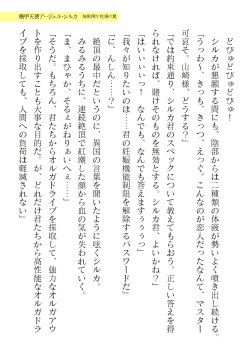 機甲天使アージェル・シルカ
どぴゅどぴゅどぴゅ！
シルカが懇願する間にも、陰部からは二種類の体液が勢いよく噴き出し続ける。
「うっわ〜、きっつぅ、きっつ、えっぐぅ。こんなのが恋人だったなんて、マスター
可哀そ。山崎様、どうする？」
「では約束通り、シルカ君のスペックについて教えてもらおう。正しい答えを得
られなければ、賭けそのものを無効とする。シルカ君、よいかね？」
「はいぃぃぃっ！　なんでも、なんでも答えますぅぅぅっ」
「我々が知りたいのは……君の妊娠機能制限を解除するパスワードだ」
「に、んしん……？」
絶頂の最中だというのに、異国の言葉を聞いたように呟くシルカ。
みるみるうちに、連続絶頂で紅潮した顔から血の気が失われていく。
「ま、まひゃか、
「そうだ。もちろん、君たちからオルガドライブを採取して、強力なオルガアウ
トを作り出すことも大事な目的だ。が、どれだけ君たちから高性能なオルガドラ
イブを採取しても、人間への負荷は軽減されない」